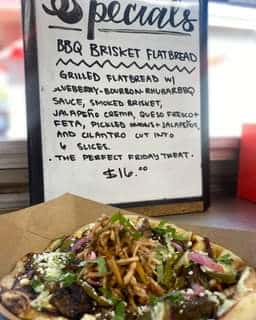 Specials
BBQ BRISKET FLATBREAD
GRILLED FLATBREAD W/
BLUEBERRY-BOURBON-RHUBARBBQ
SAUCE, SMOKED BRISKET,
JALAPEÑO CREMA, QUESO FRESCO +
FETA, PICKLED ONIONS + JALAPEÑOS,
AND CILANTRO CUT INTO
6 SLICES.
• THE PERFECT FRIDAY TREAT.
$16.00